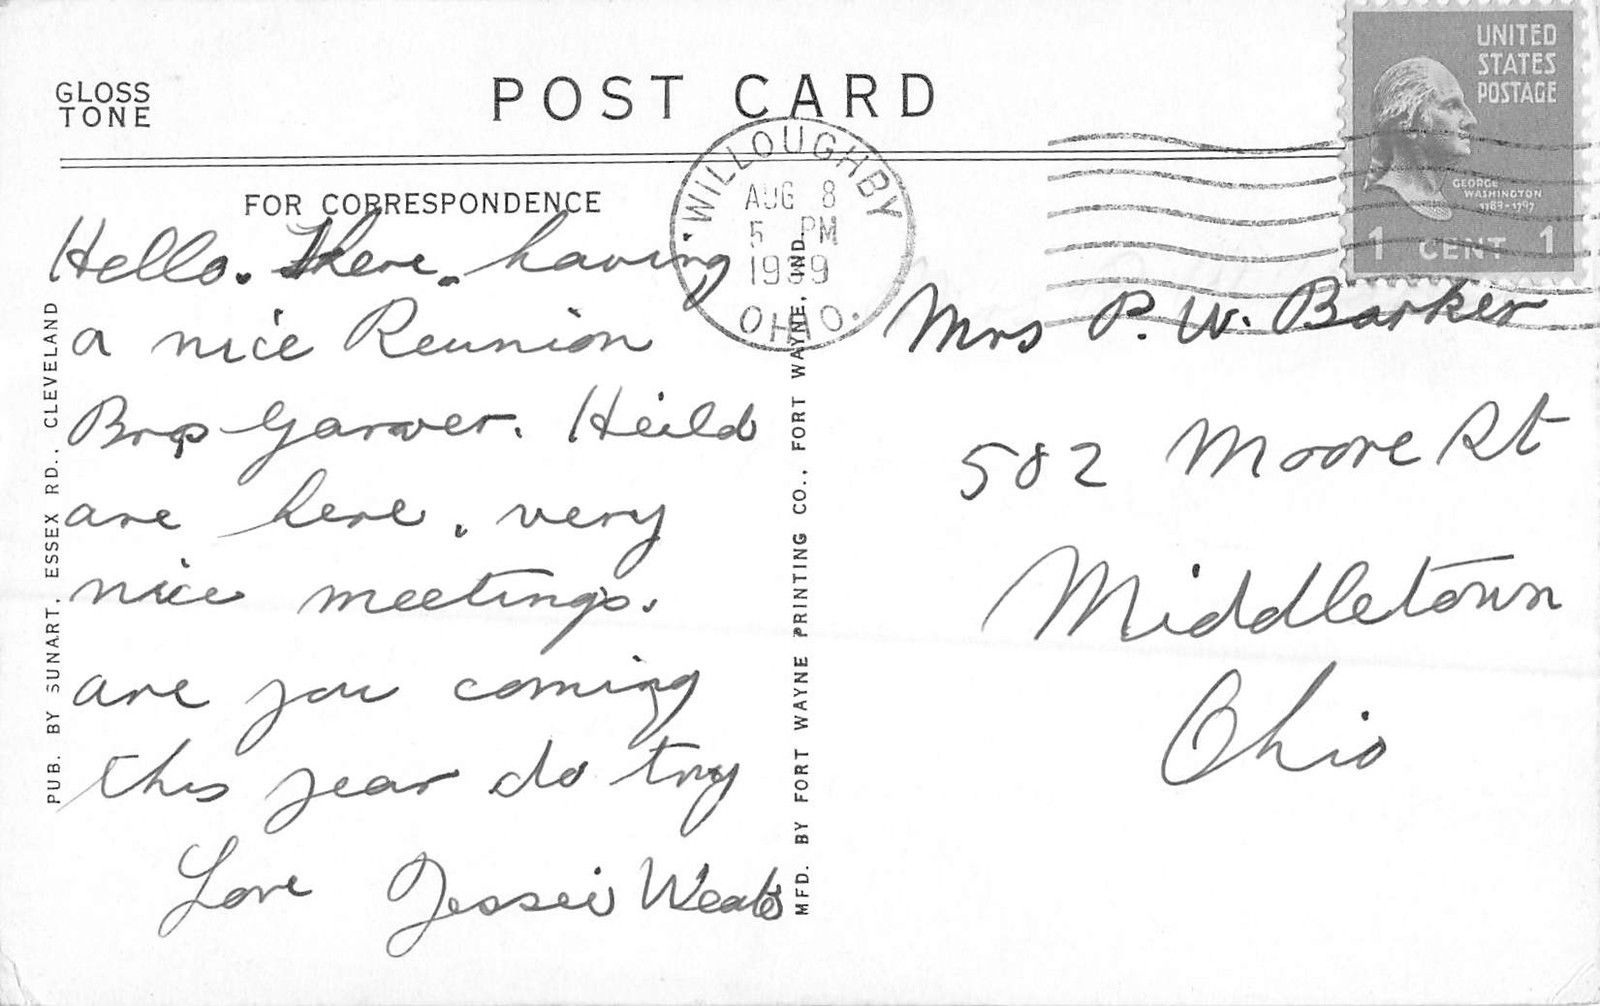 GLOSS
TONE
POST CARD
FOR CORRESPONDENCE
WILLOUGHBY
AUG 8
5 PM
1939
OHIO.
UNITED
STATES
POSTAGE
GEORGE
WASHINGTON
1789-1797
1 CENT 1
Hello. There. having
a nice Reunion
Garver. Heild
are here. very
nice meetings.
are you coming
this year do try
Love Jessie
Mrs P. W. Barker
582 Moore St
Middletown
Ohio
PUB. BY SUNART, ESSEX RD., CLEVELAND
MFD. BY FORT WAYNE PRINTING CO., FORT WAYNE, IND.